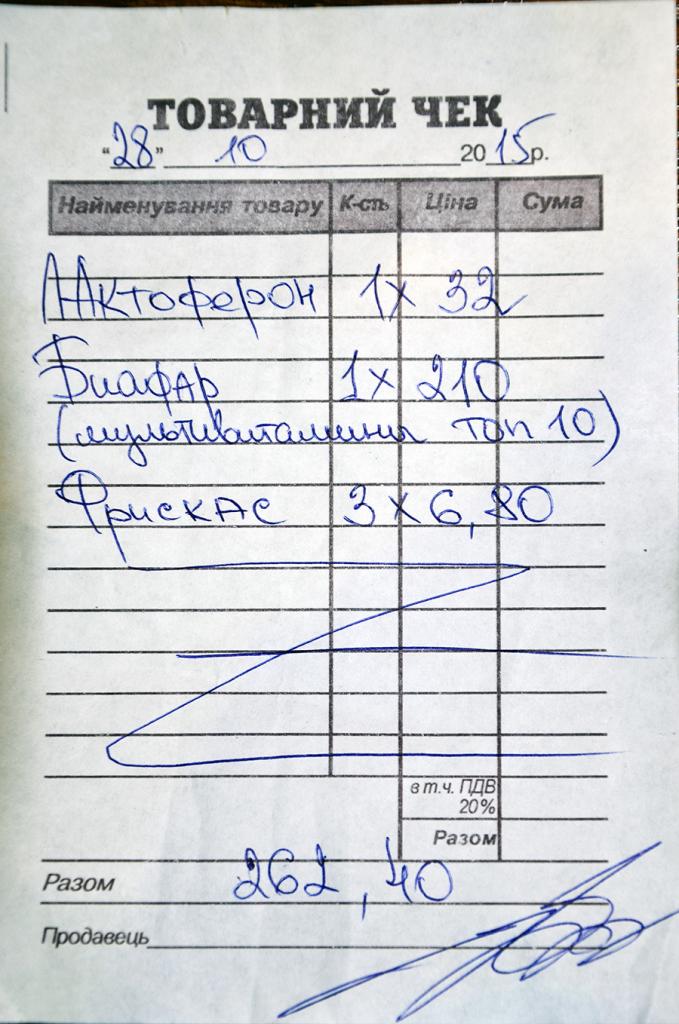 ТОВАРНИЙ ЧЕК
"28" 10 2015р.
Найменування товару К-сть Ціна Сума
Лактоферон 1 х 32
Биафар 1 х 210
(мультивитамины топ 10)
Фрискас 3 х 6,80
в т.ч. ПДВ
20%
Разом
Разом 262,40
Продавець